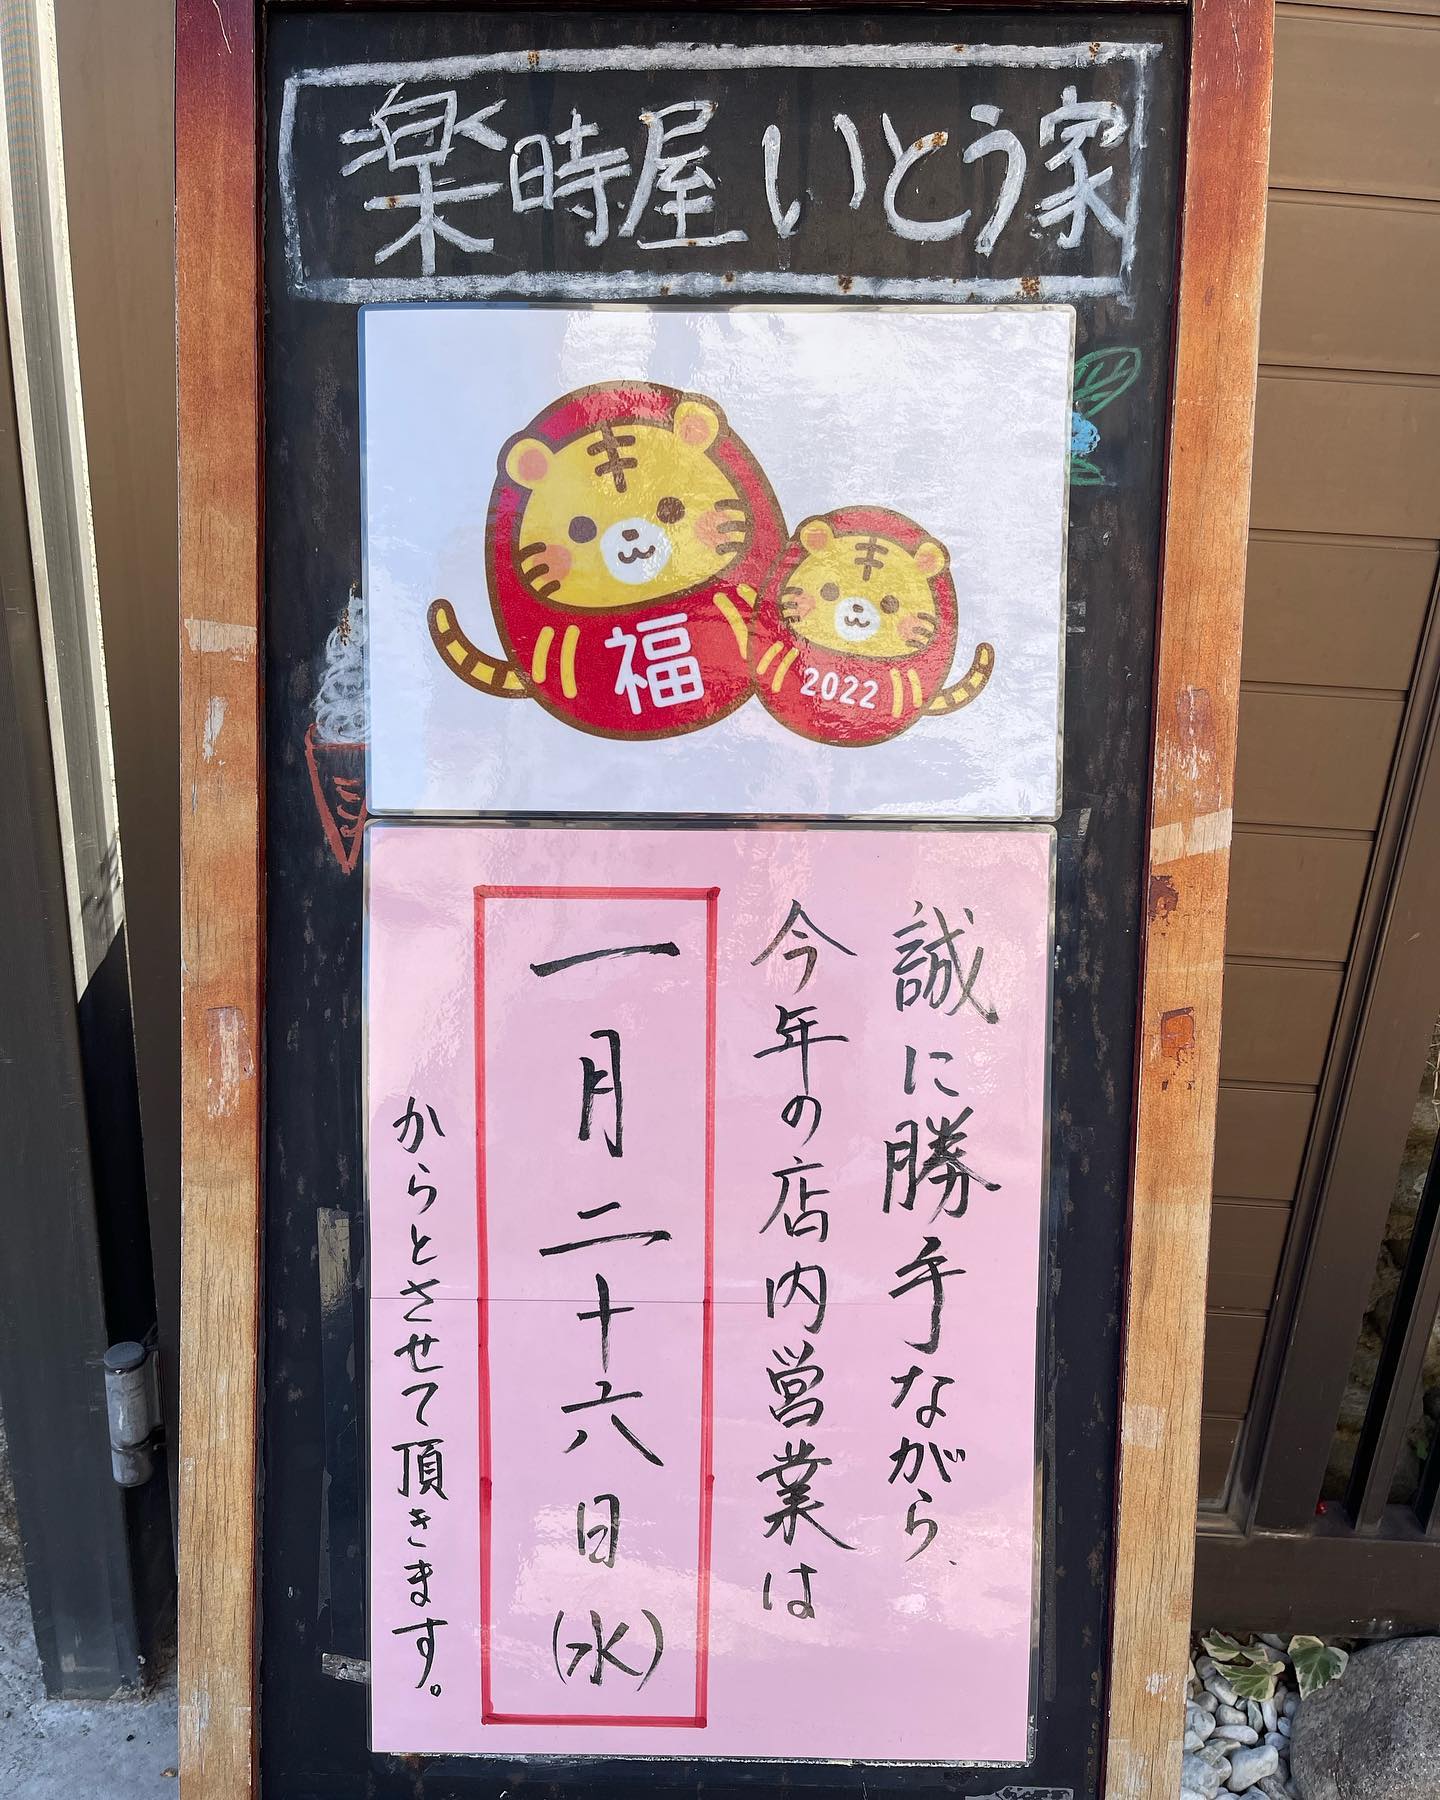 楽時屋 いとう家
福
2022
誠に勝手ながら、
今年の店内営業は
一月二十六日(水)
からとさせて頂きます。